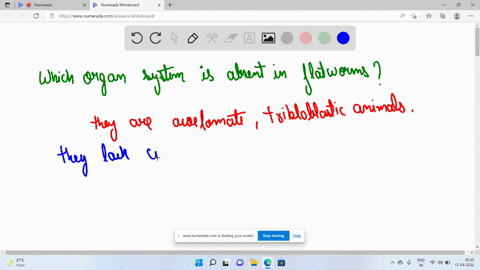 Numerade
Numerade Whiteboard
https://www.numerade.com/answers/whiteboard/
Which organ system is absent in flatworms?
they are acelomate, tribloblastic animals.
they lack c
www.numerade.com is sharing your screen.
Stop sharing
Hide
27°C
Haze
ENG
IN
05:20
17-04-2022